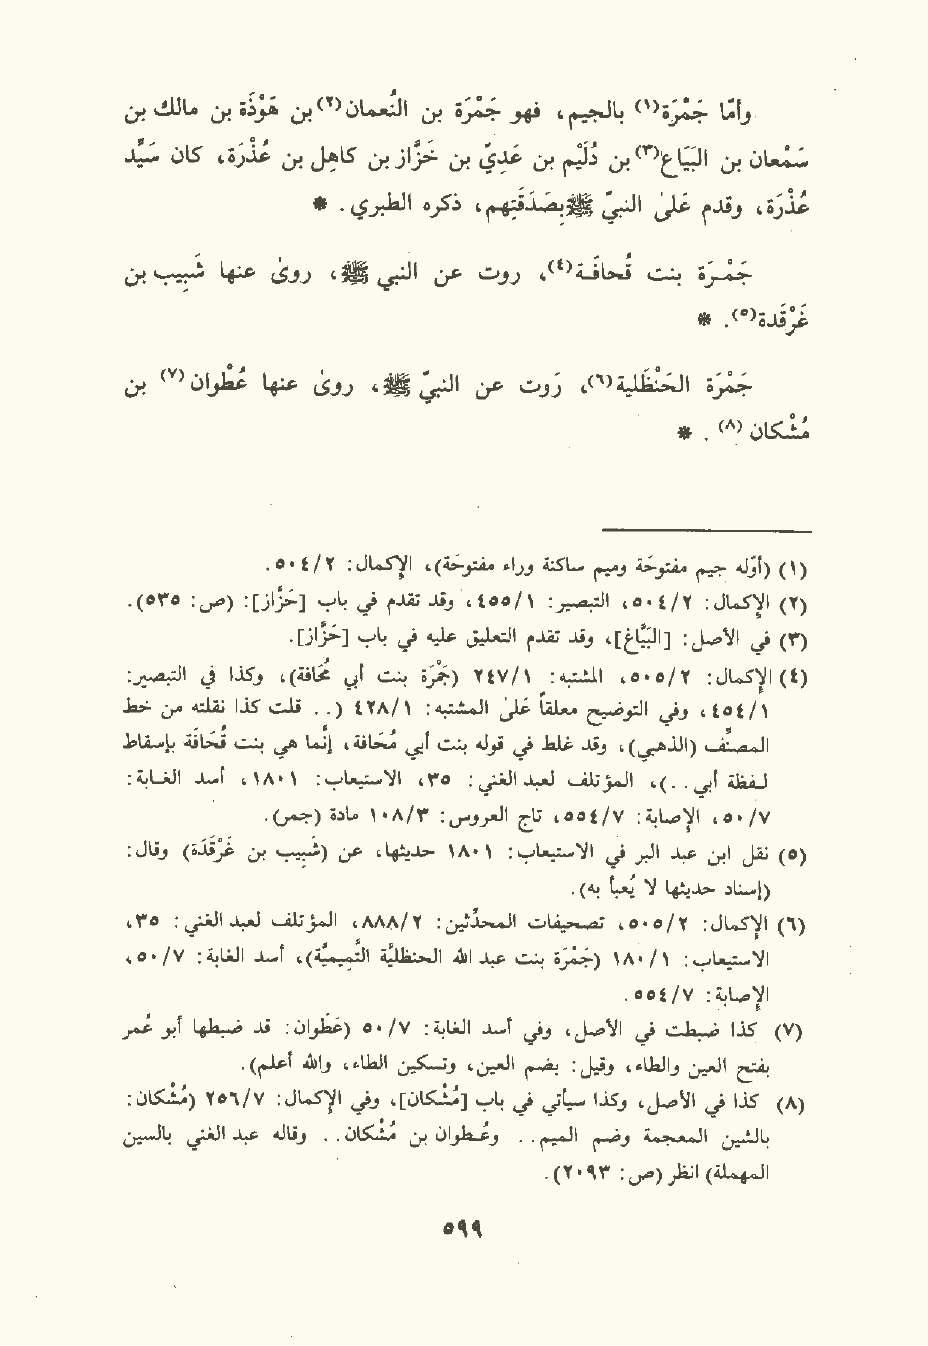 وأمّا جَمْرَة(١) بالجيم، فهو جَمْرَة بن النُّعمان(٢) بن هَوْذَة بن مالك بن
سَمْعان بن البَيَّاع(٣) بن دُلَيْم بن عَدِيّ بن حَزَّاز بن كاهل بن عُذْرَة، كان سَيِّد
عُذْرَة، وقدم عَلىٰ النبيّ ﷺ بِصَدَقَتِهم، ذكره الطبري. *
جَمْرَة بنت قُحافَة(٤)، روت عن النبي ﷺ، روىٰ عنها شَبِيب بن
غَرْقَدة(٥). *
جَمْرَة الحَنْظَلية(٦)، رَوت عن النبيّ ﷺ، روىٰ عنها عُطْوان(٧) بن
مُشْكان(٨). *
(١) (أوّله جيم مفتوحَة وميم ساكنة وراء مفتوحَة)، الإكمال: ٢/ ٥٠٤.
(٢) الإكمال: ٢/ ٥٠٤، التبصير: ١/ ٤٥٥، وقد تقدم في باب [حَزَّاز]: (ص: ٥٣٥).
(٣) في الأصل: [البَيَّاع]، وقد تقدم التعليق عليه في باب [حَزَّاز].
(٤) الإكمال: ٢/ ٥٠٥، المشتبه: ١/ ٢٤٧ (جَمْرَة بنت أبي مُحَافة)، وكذا في التبصير:
١/ ٤٥٤، وفي التوضيح معلقاً علىٰ المشتبه: ١/ ٤٢٨ (.. قلت كذا نقلته من خط
المصنّف (الذهبي)، وقد غلط في قوله بنت أبي مُحَافة، إنّما هي بنت قُحَافَة بإسقاط
لفظة أبي..)، المؤتلف لعبد الغني: ٣٥، الاستيعاب: ١٨٠١، أسد الغابة:
٧/ ٥٠، الإصابة: ٧/ ٥٥٤، تاج العروس: ٣/ ١٠٨ مادة (جمر).
(٥) نقل ابن عبد البر في الاستيعاب: ١٨٠١ حديثها، عن (شَبِيب بن غَرْقَدَة) وقال:
(إسناد حديثها لا يُعبأ به).
(٦) الإكمال: ٢/ ٥٠٥، تصحيفات المحدّثين: ٢/ ٨٨٨، المؤتلف لعبد الغني: ٣٥،
الاستيعاب: ١/ ١٨٠ (جَمْرَة بنت عبد الله الحنظليَّة التَّمِيميَّة)، أسد الغابة: ٧/ ٥٠،
الإصابة: ٧/ ٥٥٤.
(٧) كذا ضبطت في الأصل، وفي أسد الغابة: ٧/ ٥٠ (عَطَوان: قد ضبطها أبو عُمر
بفتح العين والطاء، وقيل: بضم العين، وتسكين الطاء، والله أعلم).
(٨) كذا في الأصل، وكذا سيأتي في باب [مُشْكان]، وفي الإكمال: ٧/ ٢٥٦ (مُشْكان:
بالشين المعجمة وضم الميم.. وعُطوان بن مُشْكان.. وقاله عبد الغني بالسين
المهملة) انظر (ص: ٢٠٩٣).
٥٩٩